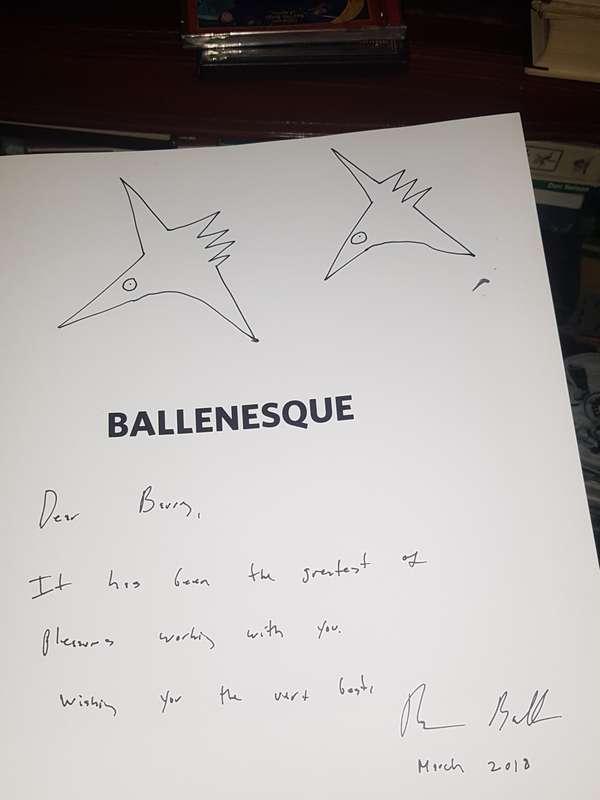 Don Nelson
BALLENESQUE
Dear Barry,
It has been the greatest of
pleasures working with you.
Wishing you the very best,
March 2018